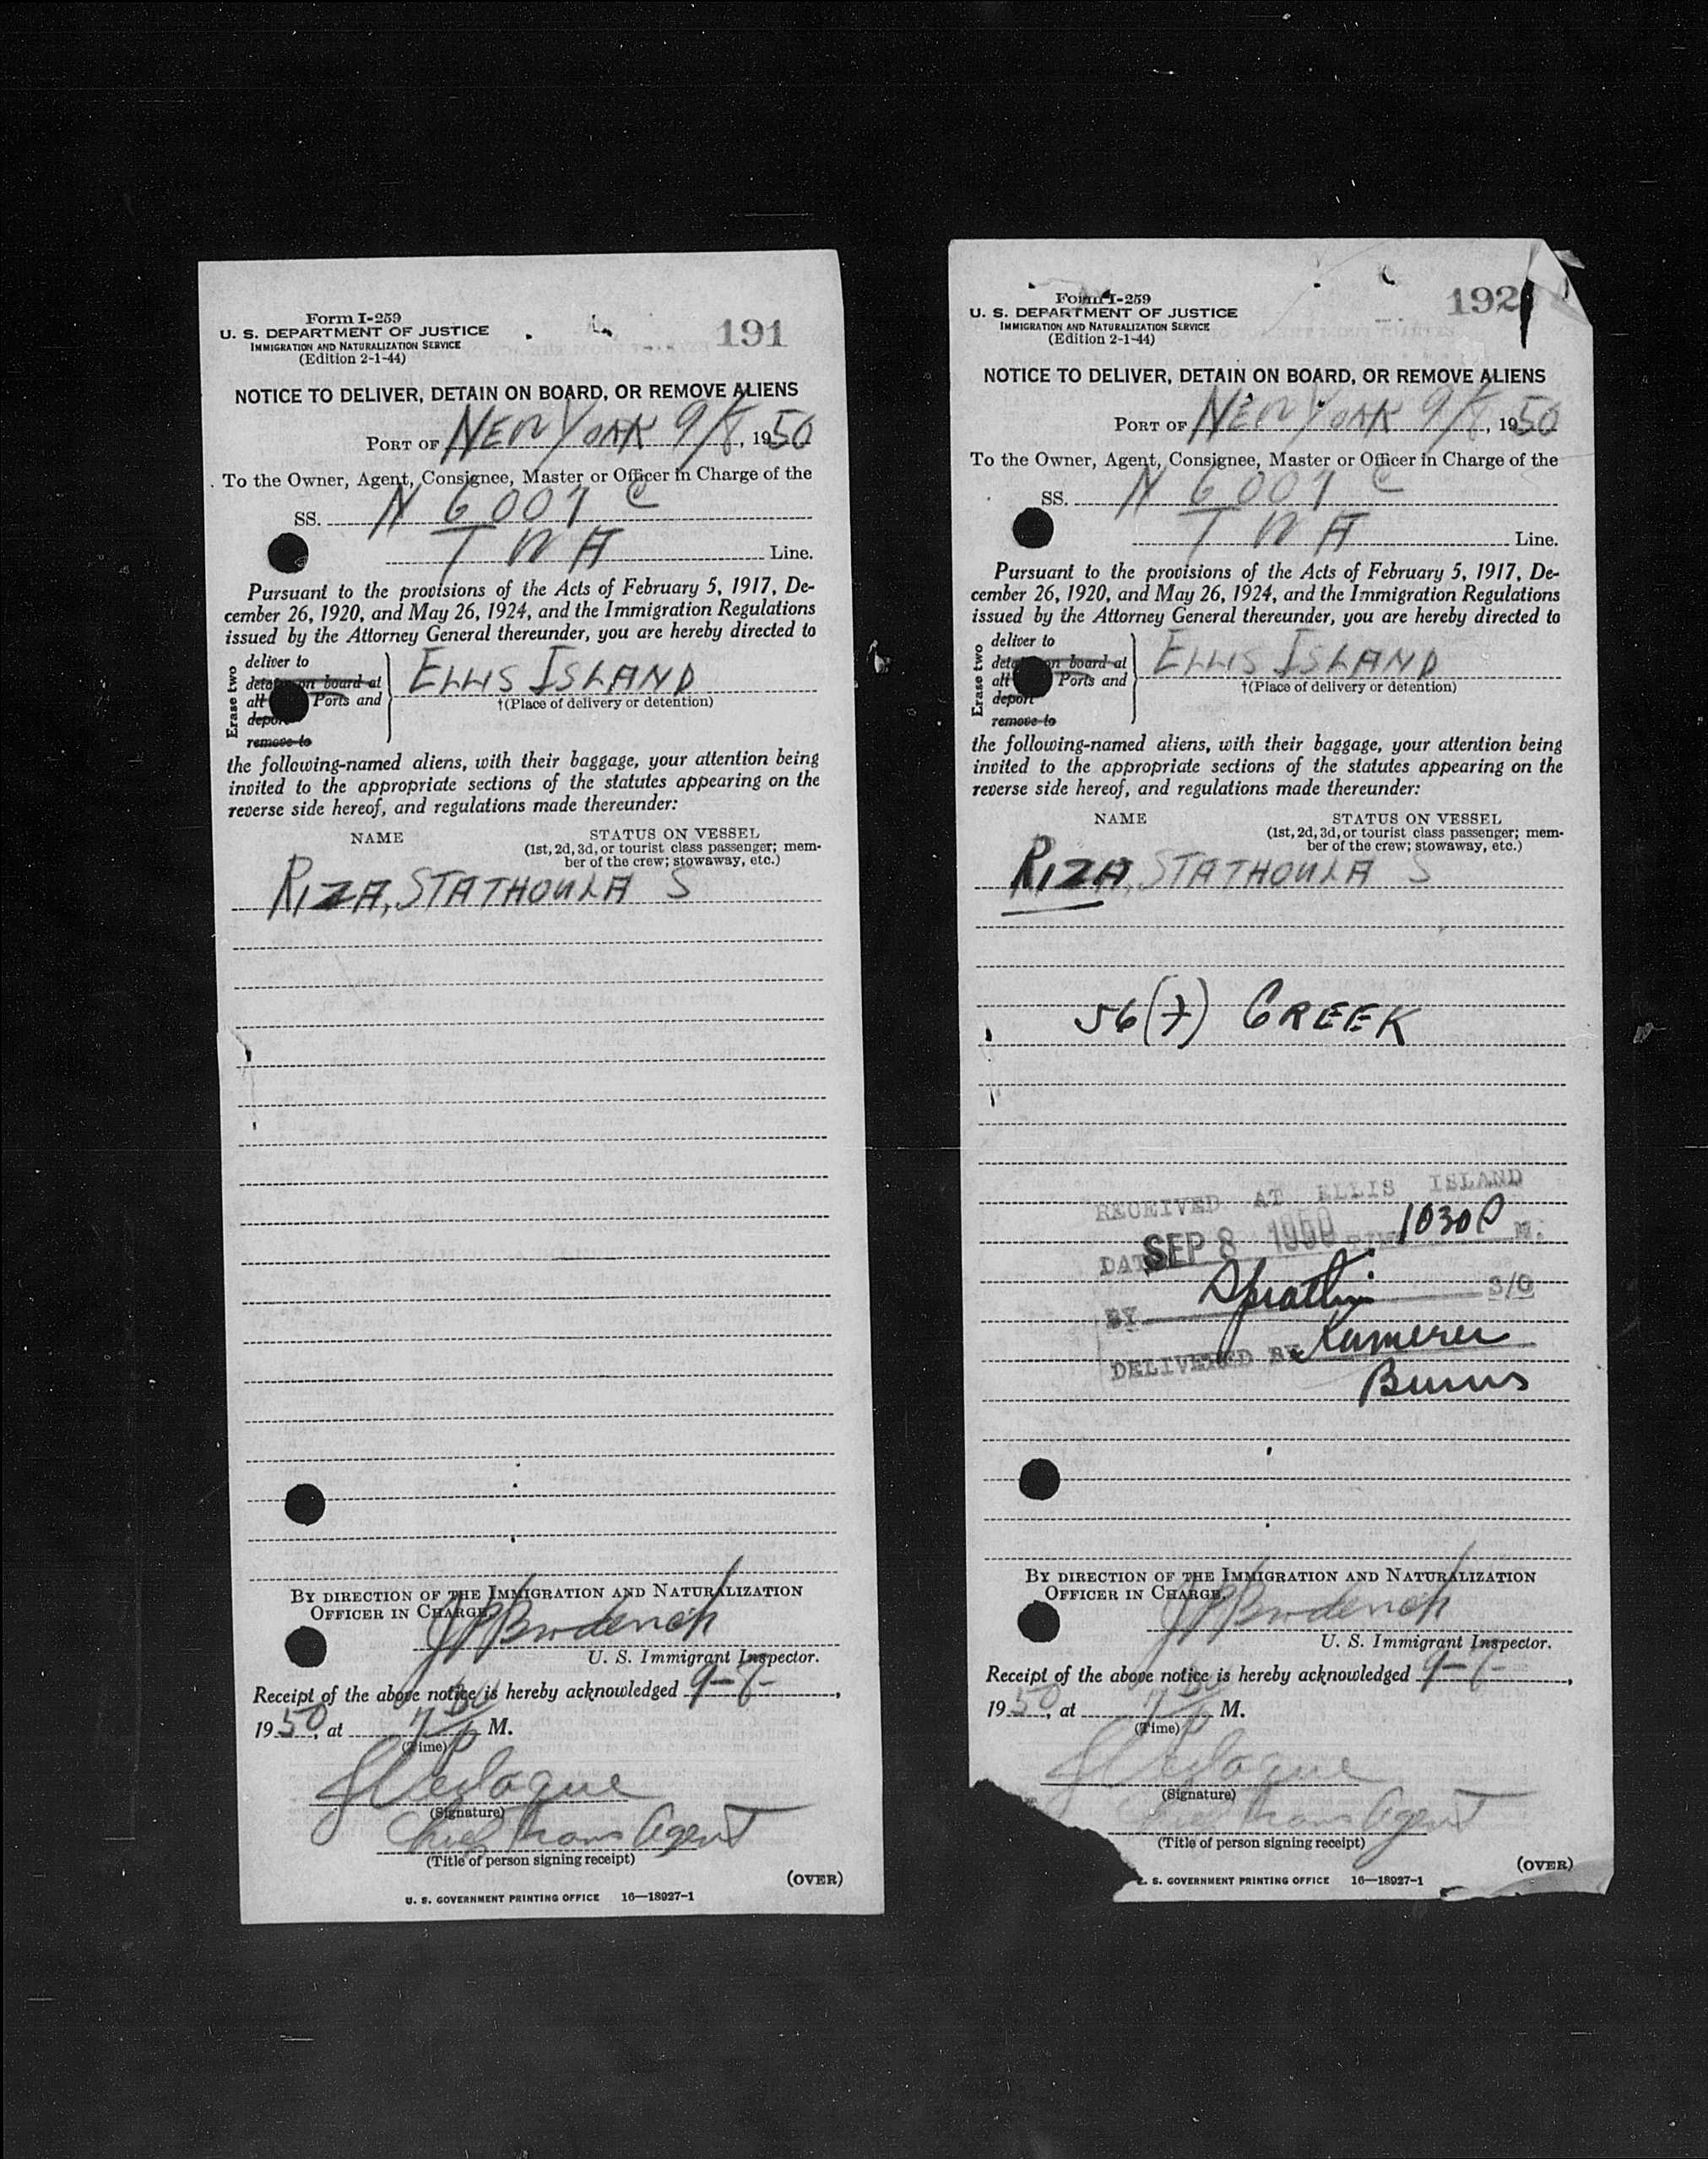 Form I-259
U. S. DEPARTMENT OF JUSTICE
IMMIGRATION AND NATURALIZATION SERVICE
(Edition 2-1-44)
191
NOTICE TO DELIVER, DETAIN ON BOARD, OR REMOVE ALIENS
PORT OF NEW YORK 9/8, 1950
To the Owner, Agent, Consignee, Master or Officer in Charge of the
SS. N 6007 C
TWA Line.
Pursuant to the provisions of the Acts of February 5, 1917, De-
cember 26, 1920, and May 26, 1924, and the Immigration Regulations
issued by the Attorney General thereunder, you are hereby directed to
Erase two
deliver to
on board at
all Ports and
remove to
ELLIS ISLAND
†(Place of delivery or detention)
the following-named aliens, with their baggage, your attention being
invited to the appropriate sections of the statutes appearing on the
reverse side hereof, and regulations made thereunder:
NAME
STATUS ON VESSEL
(1st, 2d, 3d, or tourist class passenger; mem-
ber of the crew; stowaway, etc.)
RIZA, STATHOULA S
BY DIRECTION OF THE IMMIGRATION AND NATURALIZATION
OFFICER IN CHARGE.
Broderick
U. S. Immigrant Inspector.
Receipt of the above notice is hereby acknowledged 9-8-,
1950, at 7 M.
(Time)
(Signature)
Chief Trans Agent
(Title of person signing receipt)
(OVER)
U. S. GOVERNMENT PRINTING OFFICE 16—18927-1
Form I-259
U. S. DEPARTMENT OF JUSTICE
IMMIGRATION AND NATURALIZATION SERVICE
(Edition 2-1-44)
192
NOTICE TO DELIVER, DETAIN ON BOARD, OR REMOVE ALIENS
PORT OF NEW YORK 9/8, 1950
To the Owner, Agent, Consignee, Master or Officer in Charge of the
SS. N 6007 C
TWA Line.
Pursuant to the provisions of the Acts of February 5, 1917, De-
cember 26, 1920, and May 26, 1924, and the Immigration Regulations
issued by the Attorney General thereunder, you are hereby directed to
Erase two
deliver to
on board at
all Ports and
deport
remove to
ELLIS ISLAND
†(Place of delivery or detention)
the following-named aliens, with their baggage, your attention being
invited to the appropriate sections of the statutes appearing on the
reverse side hereof, and regulations made thereunder:
NAME
STATUS ON VESSEL
(1st, 2d, 3d, or tourist class passenger; mem-
ber of the crew; stowaway, etc.)
RIZA, STATHOULA S
56 (F) GREEK
RECEIVED AT ELLIS ISLAND
DATE SEP 8 1950 TIME 1030 P M.
BY S/O
DELIVERED BY Kamerer
Burns
BY DIRECTION OF THE IMMIGRATION AND NATURALIZATION
OFFICER IN CHARGE.
Broderick
U. S. Immigrant Inspector.
Receipt of the above notice is hereby acknowledged 9-8-,
1950, at 7 M.
(Time)
(Signature)
Chief Trans Agent
(Title of person signing receipt)
(OVER)
S. GOVERNMENT PRINTING OFFICE 16—18927-1